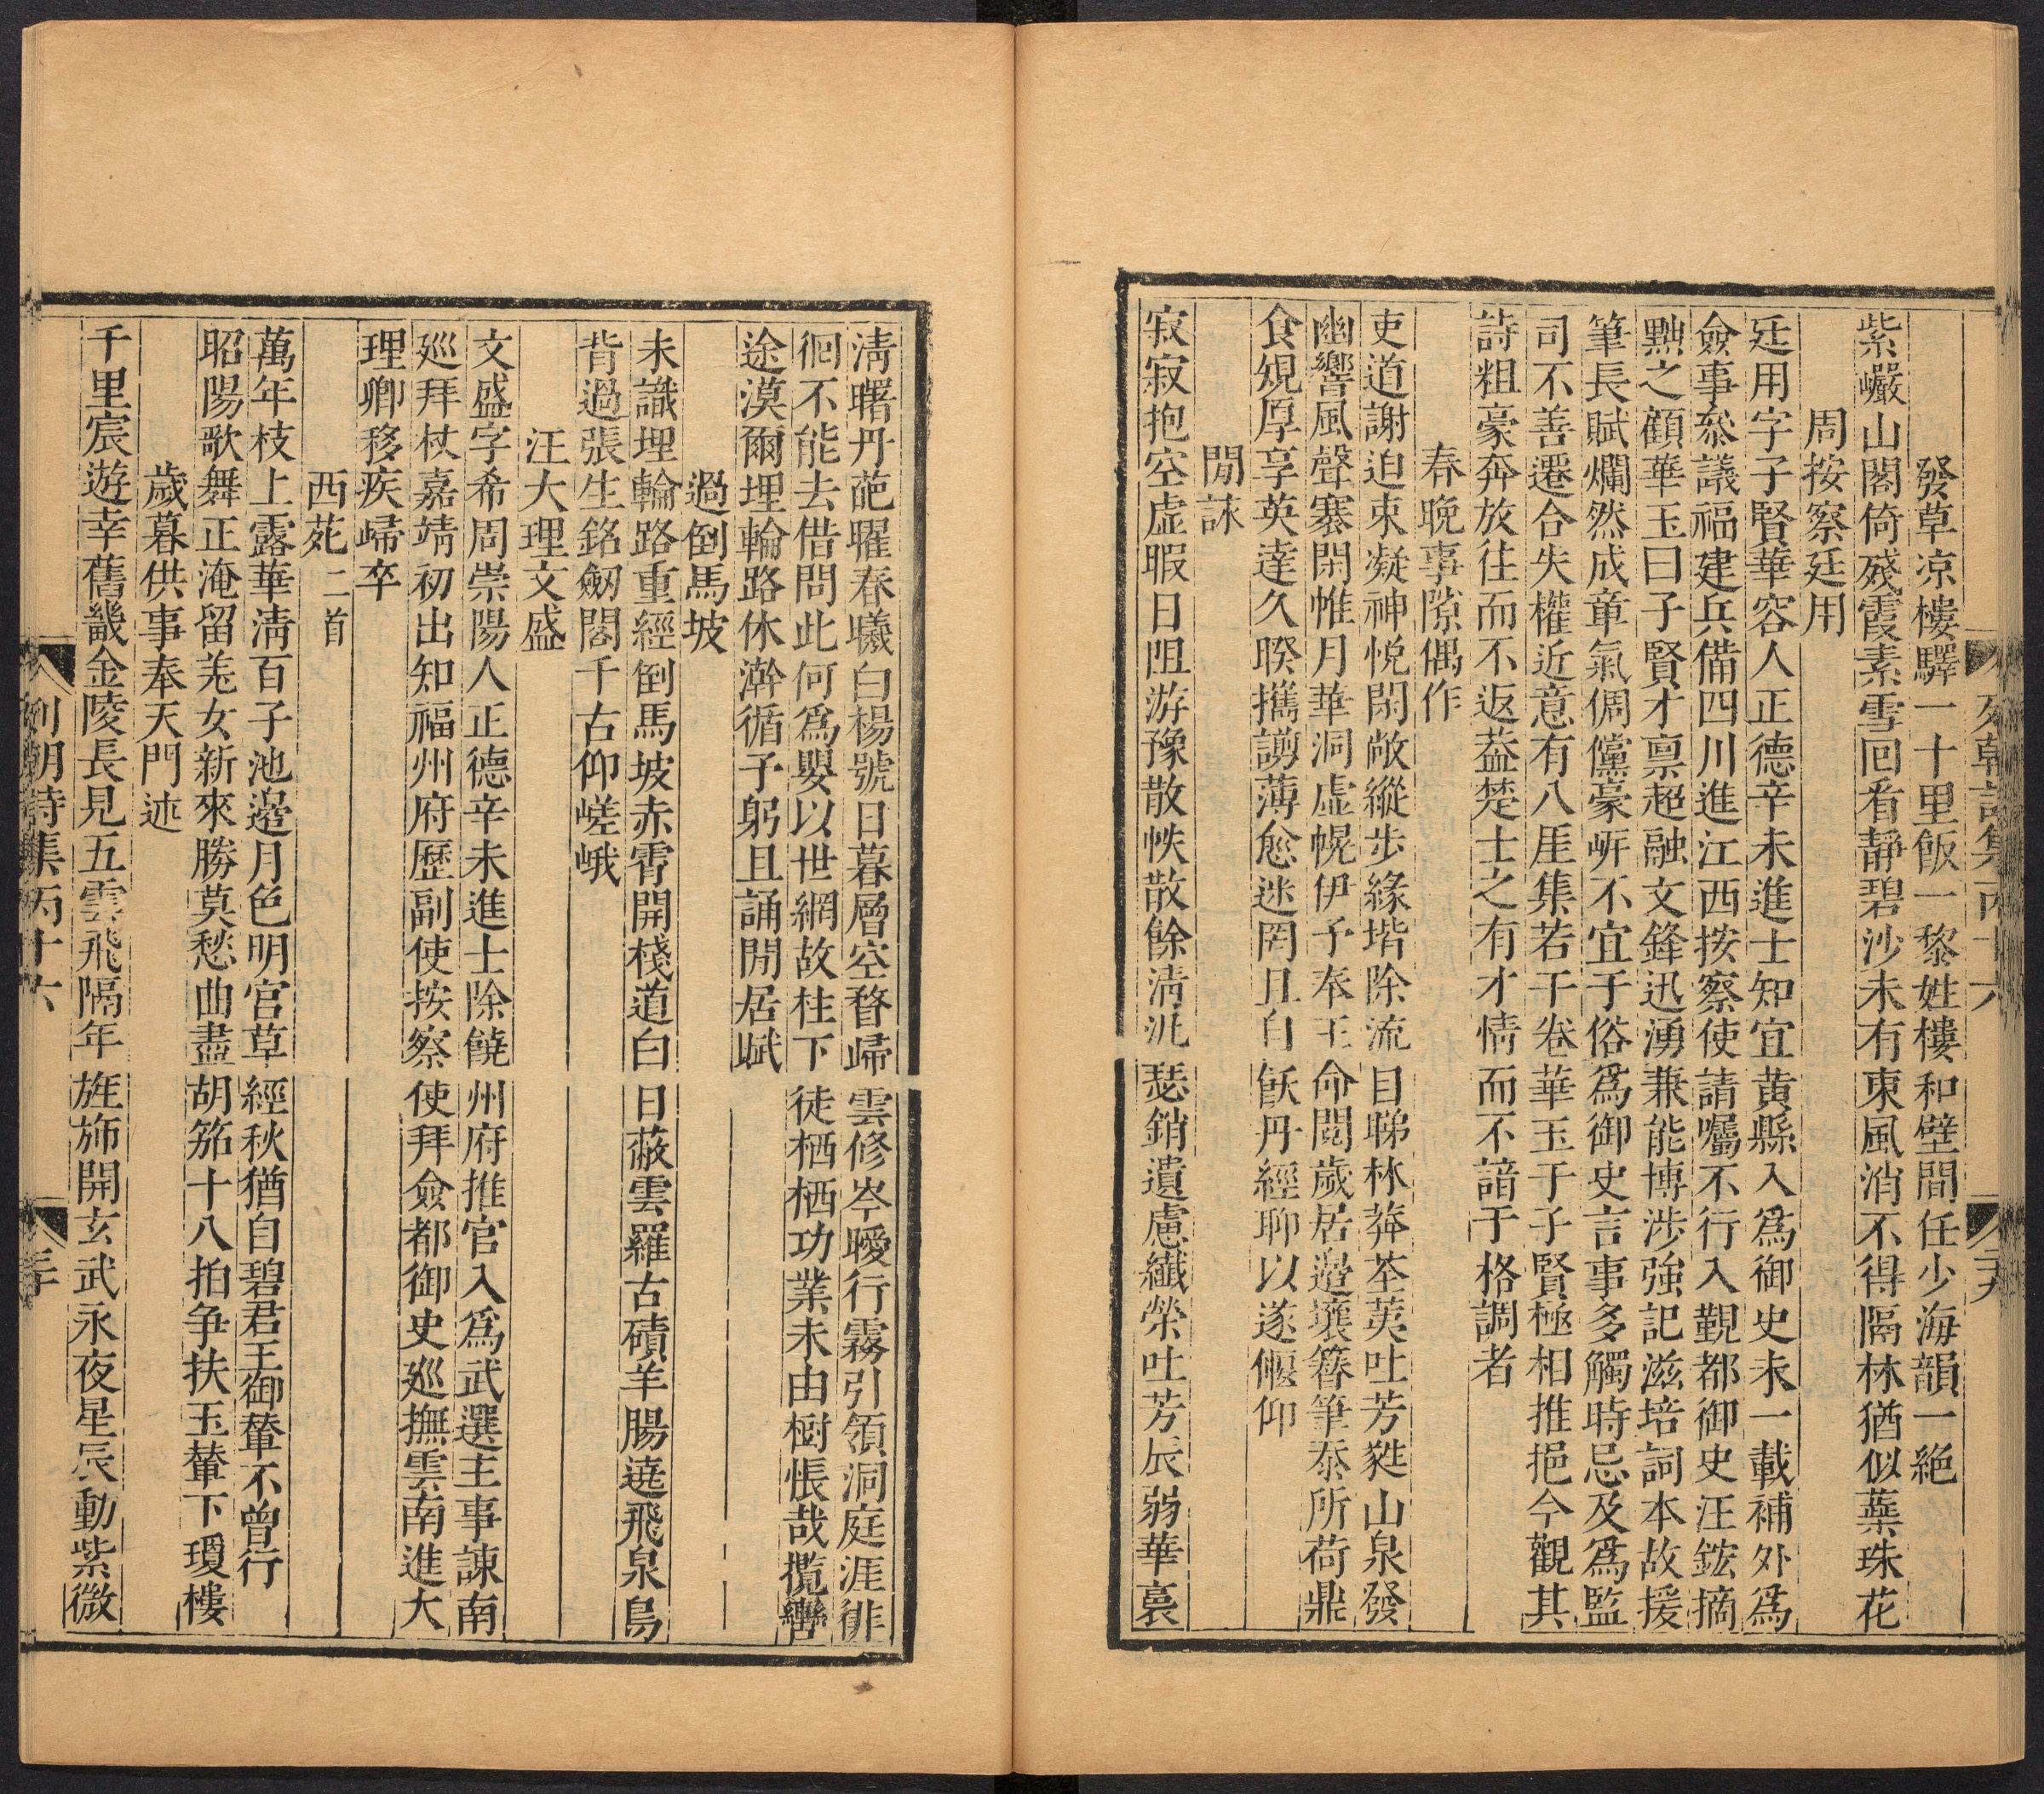 列朝詩集丙十六
二十九
發草凉樓驛一十里飯一黎姓樓和壁間任少海韻一絶
紫巗山閣倚殘霞素雪回看靜碧沙未有東風消不得隔林猶似蘂珠花
周按察廷用
廷用字子賢華容人正德辛未進士知宜黃縣入爲御史未一載補外爲
僉事叅議福建兵備四川進江西按察使請囑不行入覲都御史汪鋐摘
黜之顧華玉曰子賢才禀超融文鋒迅湧兼能博涉強記滋培詞本故援
筆長賦爛然成章氣倜儻豪岍不宜于俗爲御史言事多觸時忌及爲監
司不善遷合失權近意有八厓集若干卷華玉于子賢極相推挹今觀其
詩粗豪奔放往而不返葢楚士之有才情而不諳于格調者
春晚事隙偶作
吏道謝迫束凝神悅閑敞縱步緣堦除流目睇林莽荃荑吐芳甤山泉發
幽響風聲褰閑帷月華洞虛幌伊予奉王命閱歲居邉壤簪筆忝所荷鼎
食覥厚享英達久暌攜謭薄愈迷罔且白飫丹經聊以遂偃仰
閒詠
寂寂抱空虛暇日阻游豫散帙散餘淸汎瑟銷遺慮纖榮吐芳辰弱華裛
淸曙丹葩曜春曦白楊號日暮層空瞀歸雲修岑曖行霧引領洞庭涯徘
徊不能去借問此何爲嬰以世網故柱下徒栖栖功業未由樹悵哉攬轡
途漠爾埋輪路休澣循予躬且誦閒居賦
過倒馬坡
未識埋輪路重經倒馬坡赤霄開棧道白日蔽雲羅古磧羊腸遶飛泉鳥
背過張生銘劒閣千古仰嵯峨
汪大理文盛
文盛字希周崇陽人正德辛未進士除饒州府推官入爲武選主事諫南
廵拜杖嘉靖初出知福州府歷副使按察使拜僉都御史廵撫雲南進大
理卿移疾歸卒
西苑 二首
萬年枝上露華淸百子池邉月色明宮草經秋猶自碧君王御輦不曾行
昭陽歌舞正淹留羌女新來勝莫愁曲盡胡笳十八拍争扶玉輦下瓊樓
歲暮供事奉天門述
千里宸遊幸舊畿金陵長見五雲飛隔年旌斾開玄武永夜星辰動紫微
列朝詩集丙十六
三十